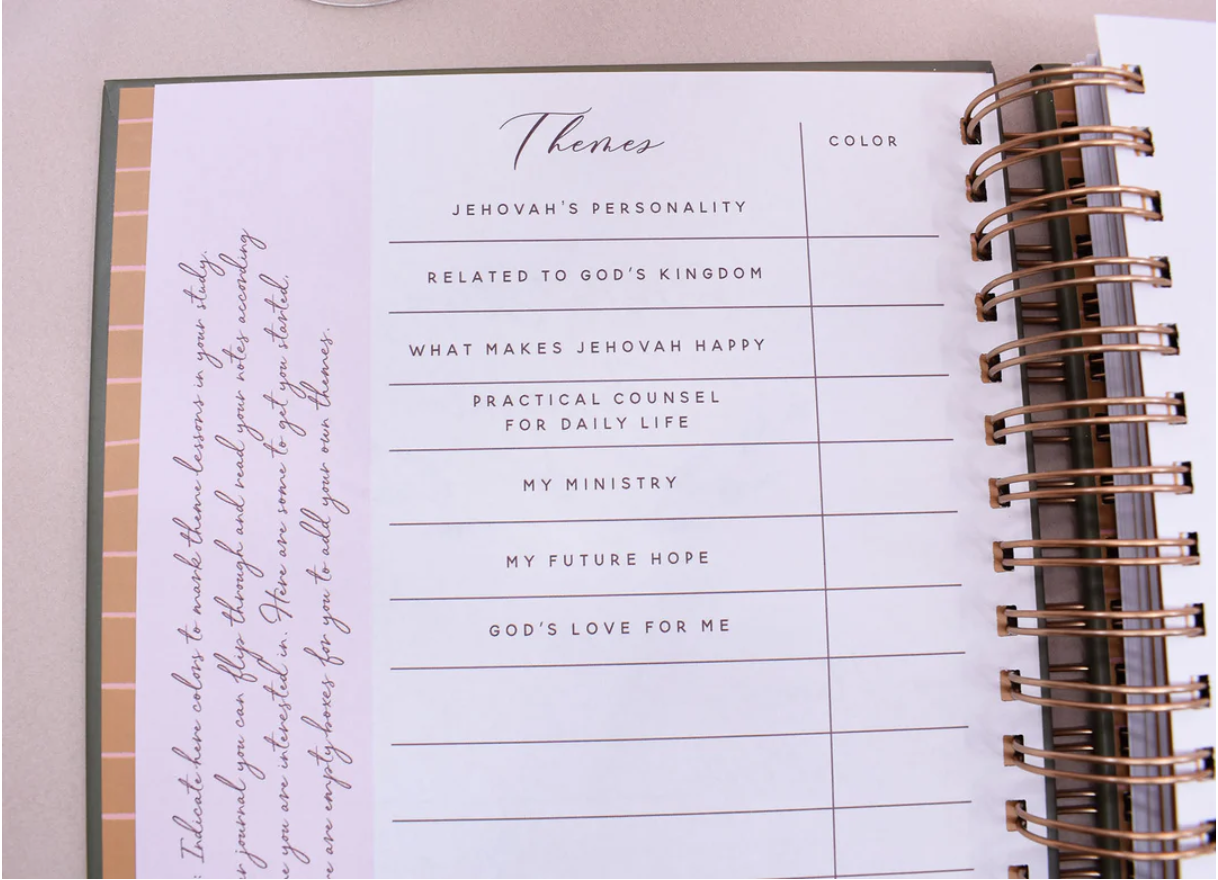 Themes
COLOR
JEHOVAH'S PERSONALITY
RELATED TO GOD'S KINGDOM
WHAT MAKES JEHOVAH HAPPY
PRACTICAL COUNSEL
FOR DAILY LIFE
MY MINISTRY
MY FUTURE HOPE
GOD'S LOVE FOR ME
: Indicate here colors to mark theme lessons in your study.
journal you can flip through and read your notes according
you are interested in. Here are some to get you started.
are empty boxes for you to add your own themes.